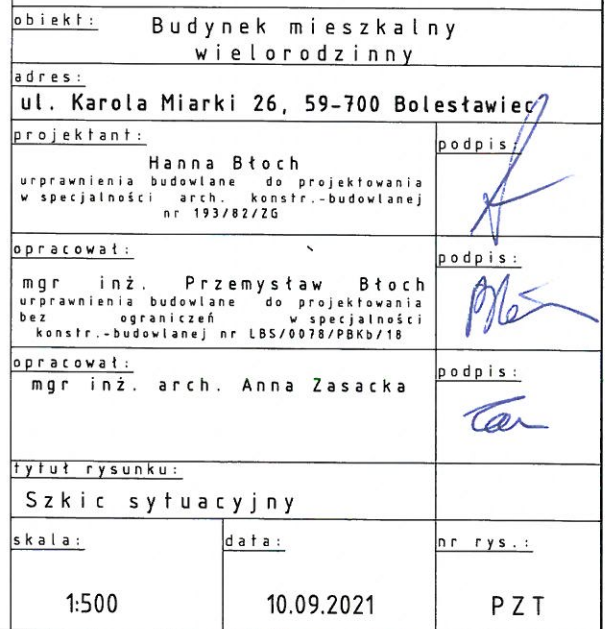 obiekt:
Budynek mieszkalny
wielorodzinny
adres:
ul. Karola Miarki 26, 59-700 Bolesławiec
projektant:
podpis:
Hanna Błoch
urprawnienia budowlane do projektowania
w specjalności arch. konstr.-budowlanej
nr 193/82/ZG
opracował:
podpis:
mgr inż. Przemysław Błoch
urprawnienia budowlane do projektowania
bez ograniczeń w specjalności
konstr.-budowlanej nr LBS/0078/PBKb/18
opracował:
podpis:
mgr inż. arch. Anna Zasacka
tytuł rysunku:
Szkic sytuacyjny
skala:
data:
nr rys.:
1:500
10.09.2021
PZT